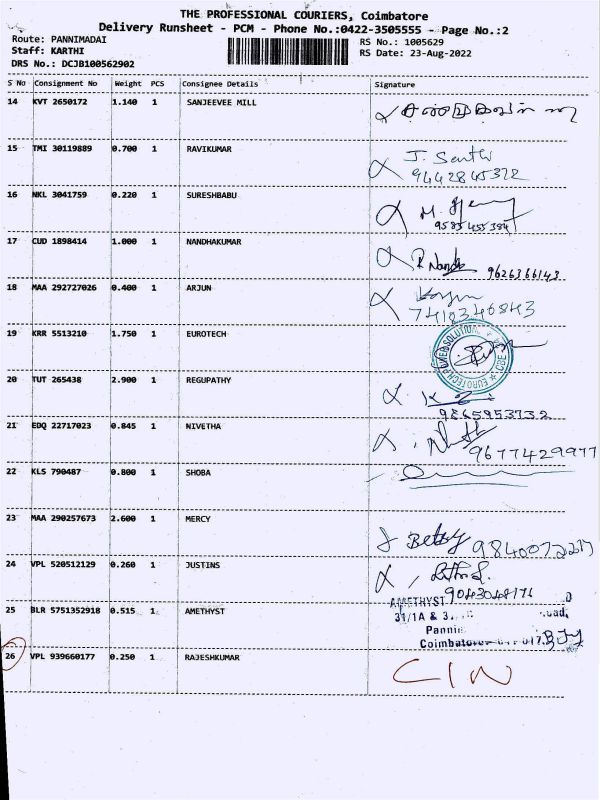 THE PROFESSIONAL COURIERS, Coimbatore
Delivery Runsheet - PCM - Phone No.:0422-3505555 - Page No.:2
Route: PANNIMADAI
RS No.: 1005629
Staff: KARTHI
RS Date: 23-Aug-2022
DRS No.: DCJB100562902
S No Consignment No Weight PCS Consignee Details Signature
14 KVT 2650172 1.140 1 SANJEEVEE MILL
15 TMI 30119889 0.700 1 RAVIKUMAR
9442845372
16 NKL 3041759 0.220 1 SURESHBABU
9585455384
17 CUD 1898414 1.000 1 NANDHAKUMAR
9626366143
18 MAA 292727026 0.400 1 ARJUN
7418346843
19 KRR 5513210 1.750 1 EUROTECH
20 TUT 265438 2.900 1 REGUPATHY
9865953732
21 EDQ 22717023 0.845 1 NIVETHA
9677429977
22 KLS 790487 0.800 1 SHOBA
23 MAA 290257673 2.600 1 MERCY
24 VPL 520512129 0.260 1 JUSTINS
9043048176
AMETHYST
25 BLR 5751352918 0.515 1 AMETHYST
31/1A & 3
26 VPL 939660177 0.250 1 RAJESHKUMAR